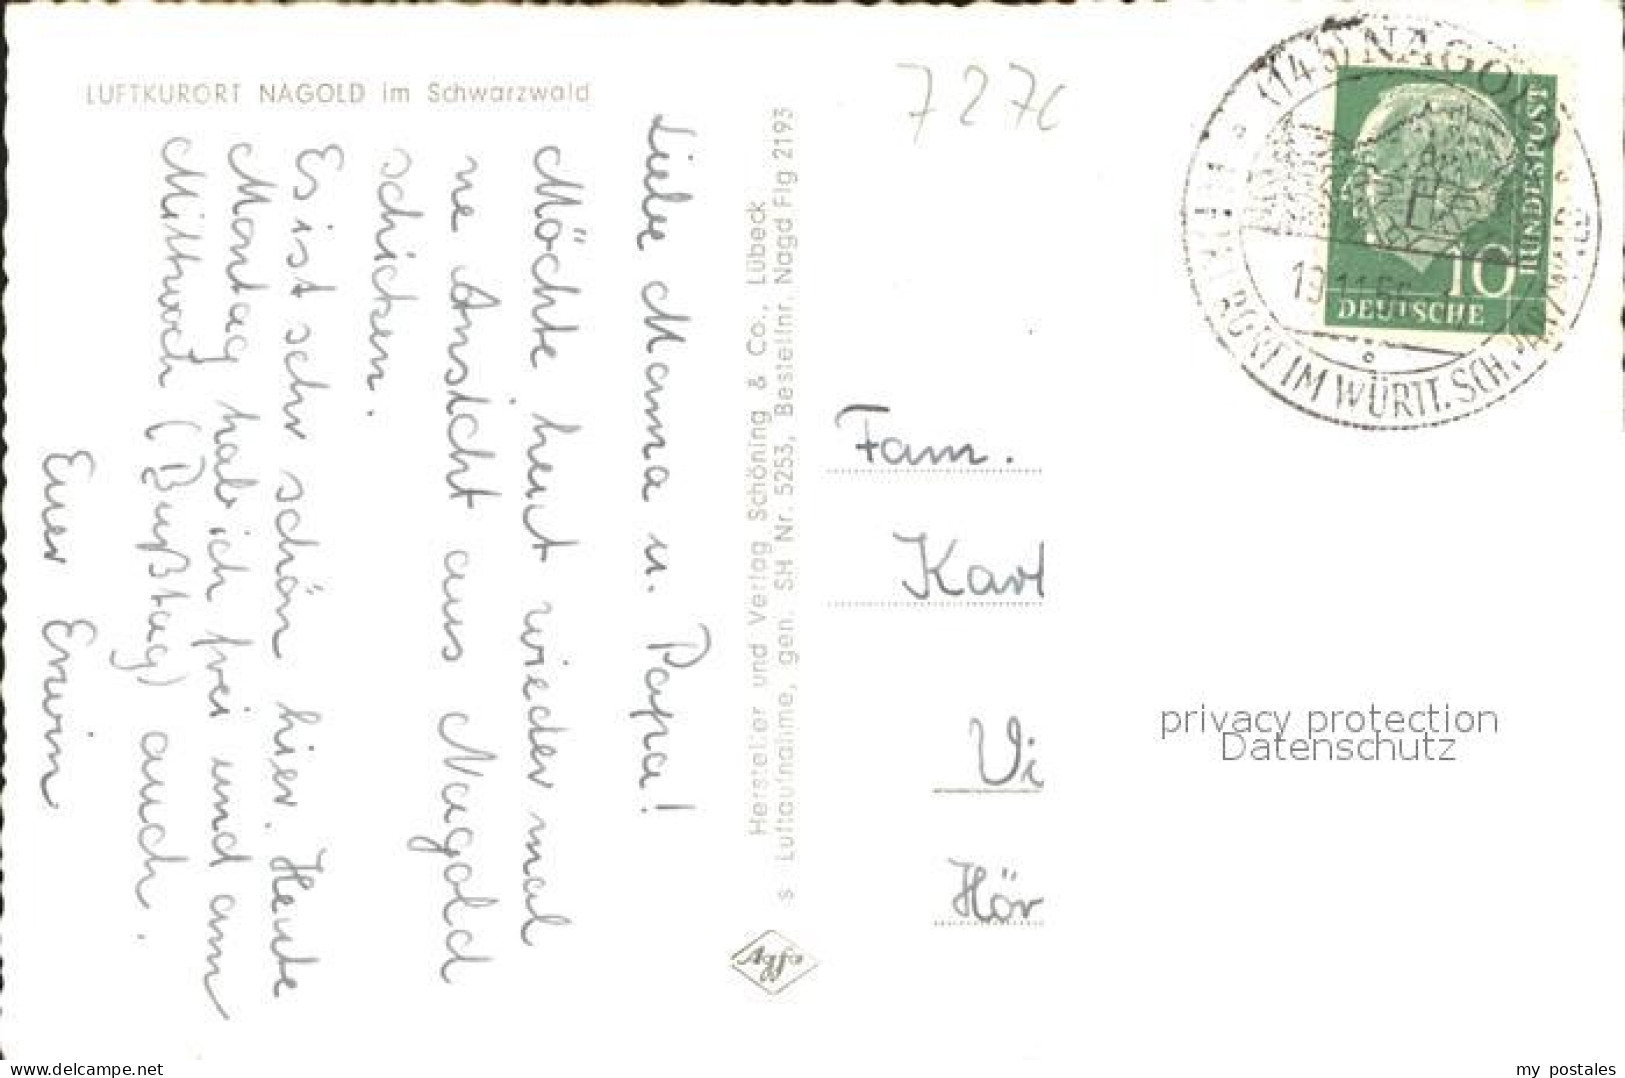 LUFTKURORT NAGOLD im Schwarzwald
Liebe Mama u. Papa!
Möchte heut wieder mal
ne Ansicht aus Nagold
schicken.
Es ist sehr schön hier. Heute
Montag hab ich frei und am
Mittwoch (Bußtag) auch.
Euer Erwin
Hersteller und Verlag Schöning & Co., Lübeck
s Luftaufnahme, gen. SH Nr. 5253, Bestellnr. Nagd Flg 2193
Agfa
727c
(14b) NAGOLD
19.11.
IM WÜRTT. SCH.
BUNDESPOST
10
DEUTSCHE
Fam.
Karl
Vi
Hör
privacy protection
Datenschutz
www.delcampe.net
my_postales